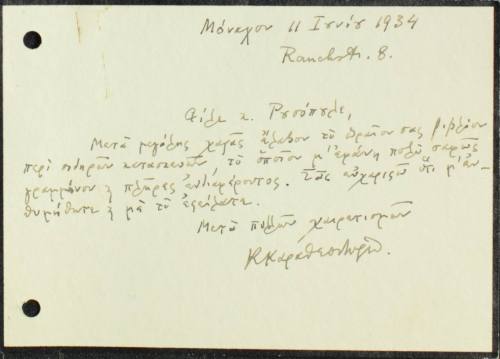 Μόναχον 11 Ἰουνίου 1934
Rauchstr. 8.
Φίλε κ. Ρουσόπουλε,
Μετὰ μεγάλης χαρᾶς ἔλαβον τὸ ὡραῖον σας βιβλίον
περὶ σιδηρῶν κατασκευῶν, τὸ ὁποῖον μ' ἐφάνη πολὺ σαφῶς
γραμμένον κ πλῆρες ἐνδιαφέροντος. Σᾶς εὐχαριστῶ ὅτι μ' ἐν-
θυμήθητε κ μὲ τὸ ἐστείλατε.
Μετὰ πολλῶν χαιρετισμῶν
Κ Καραθεοδωρῆ